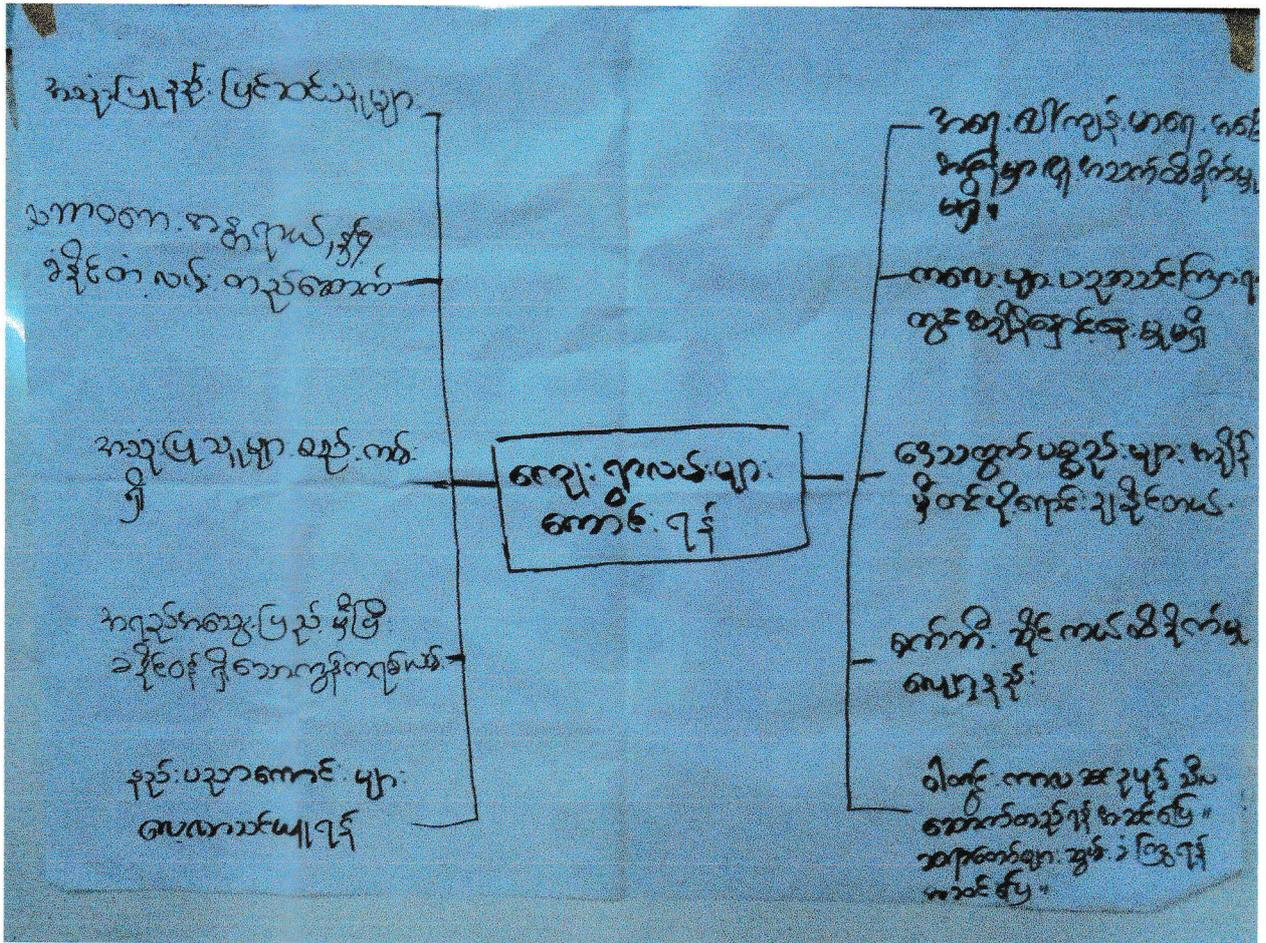 အသုံးပြုနည်း ပြင်ဆင်သူများ
သဘာဝဘေး အန္တရာယ်နှင့်
ခံနိုင်တဲ့ လမ်း တည်ဆောက်
အသုံးပြုသူများ စည်းကမ်း
ရှိ
အရည်အသွေးပြည့်မှီပြီး
ခံနိုင်ဝန်ရှိသောကွန်ကရစ်လမ်း
နည်းပညာကောင်းများ
လေ့လာသင်ယူရန်
ကျေးရွာလမ်းများ
ကောင်းရန်
အရေးပေါ်ကျန်းမာရေး
အသက်ထိခိုက်မှု
မရှိ။
ကလေးများ ပညာသင်ကြားရာ
တွင် အချိန်နှောင့်နှေးမှုမရှိ
ဒေသထွက်ပစ္စည်းများ အချိန်
မှီတင်ပို့ရောင်းချနိုင်တယ်။
ဆိုင်ကယ်ထိခိုက်မှု
လျော့နည်း
ဝါတွင်းကာလ
ဆောက်တည်ရန် အဆင်ပြေ။
ဆရာတော်များ ဆွမ်းခံကြွရန်
အဆင်ပြေ။